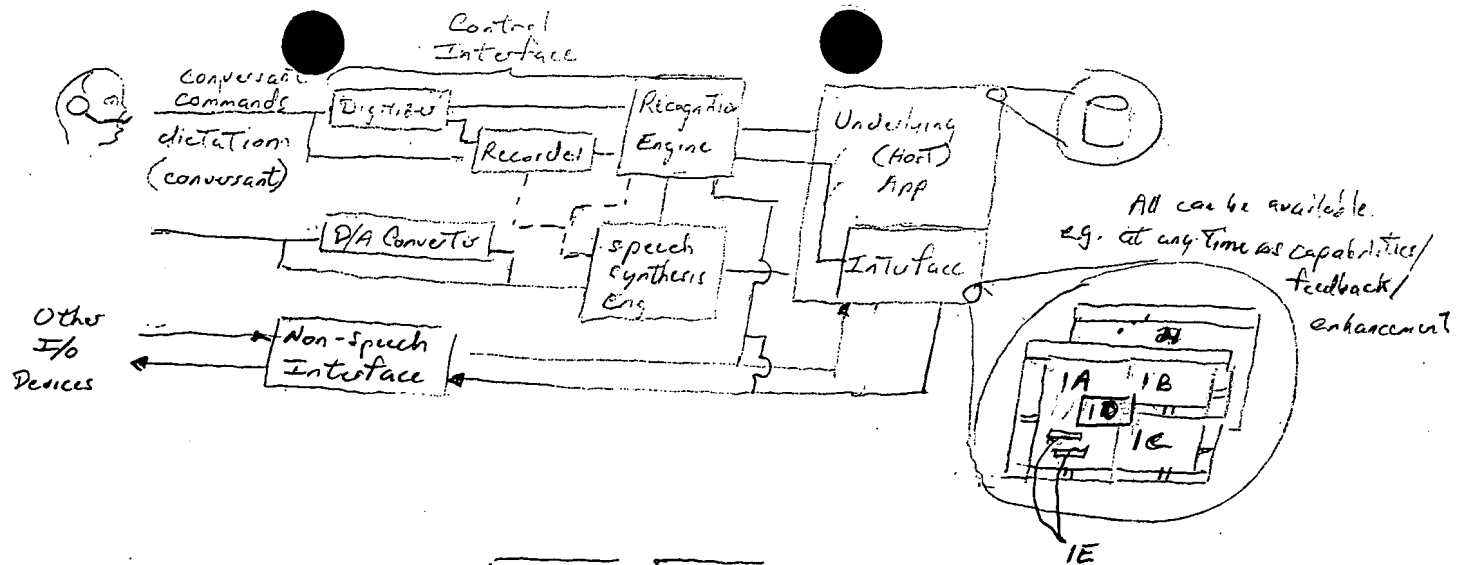 Control
Interface
conversant
commands
dictation
(conversant)
Digitizer
Recorder
Recognition
Engine
Underlying
(Host)
App
Interface
D/A Converter
speech
synthesis
Eng
Other
I/O
Devices
Non-Speech
Interface
All can be available
e.g. at any time as capabilities/
feedback/
enhancement
1A
1B
1D
1C
1E